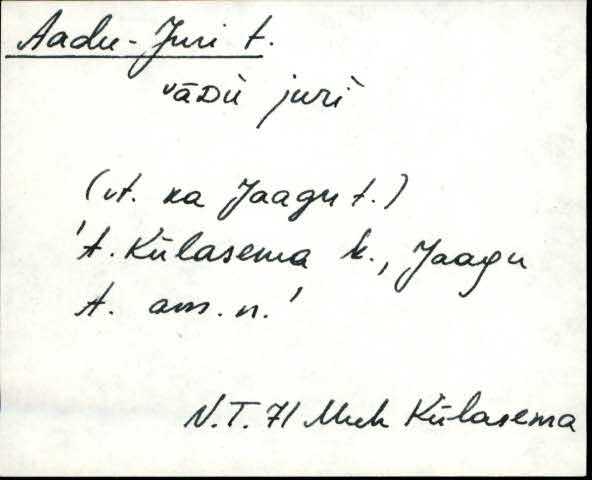 Aadu-Juri t.
ˇāDù juri`
(vt. ka Jaagu t.)
't. Külasema k., Jaagu
t. am. n.'
N.T. 71 Muh Külasema